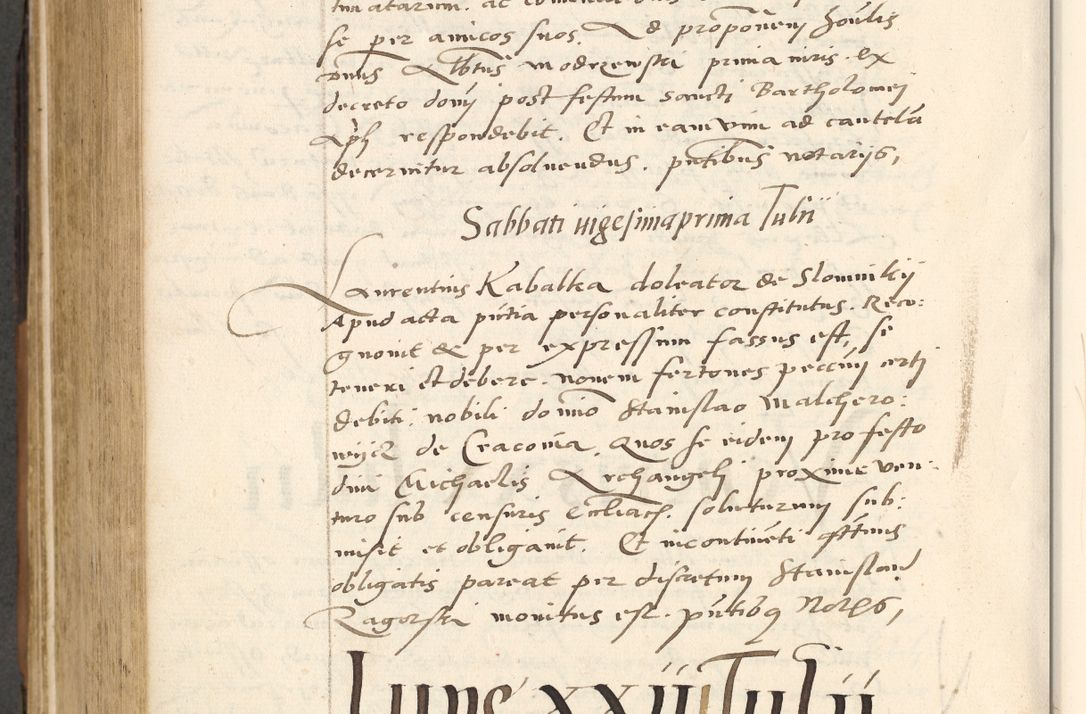 se per amicos suos. Ad proponen̄ Zoulis
Dnus Albtus Modrzewski prima iuris. ex
decreto domj post festum sancti Bartholomej
Aplj respondebit. Et in eam vim ad cautelā
decernitur absoluendus. pntibus notarijs,
Sabbati uigesimaprima Iulii
Laurentius Kabalka doleator de Slomnikij
Apud acta pntia personaliter constitutus. Reco:
gnouit & per expressum fassus est, se
teneri et debere. nouem fertones peccunij certi
debiti. nobili domīo Stanislao Malchero:
wijcz de Cracouia. Quos se eidem pro festo
diui Michaelis Archangeli proxime ven:
turo sub censuris Ecclīacs. soluturum sub:
misit et obligauit. Et incontinēti
obligatis pareat per discretum Stanislaū
Zagorski monitus est. pntibq Nortҍs,
Lune xxiii Iulii